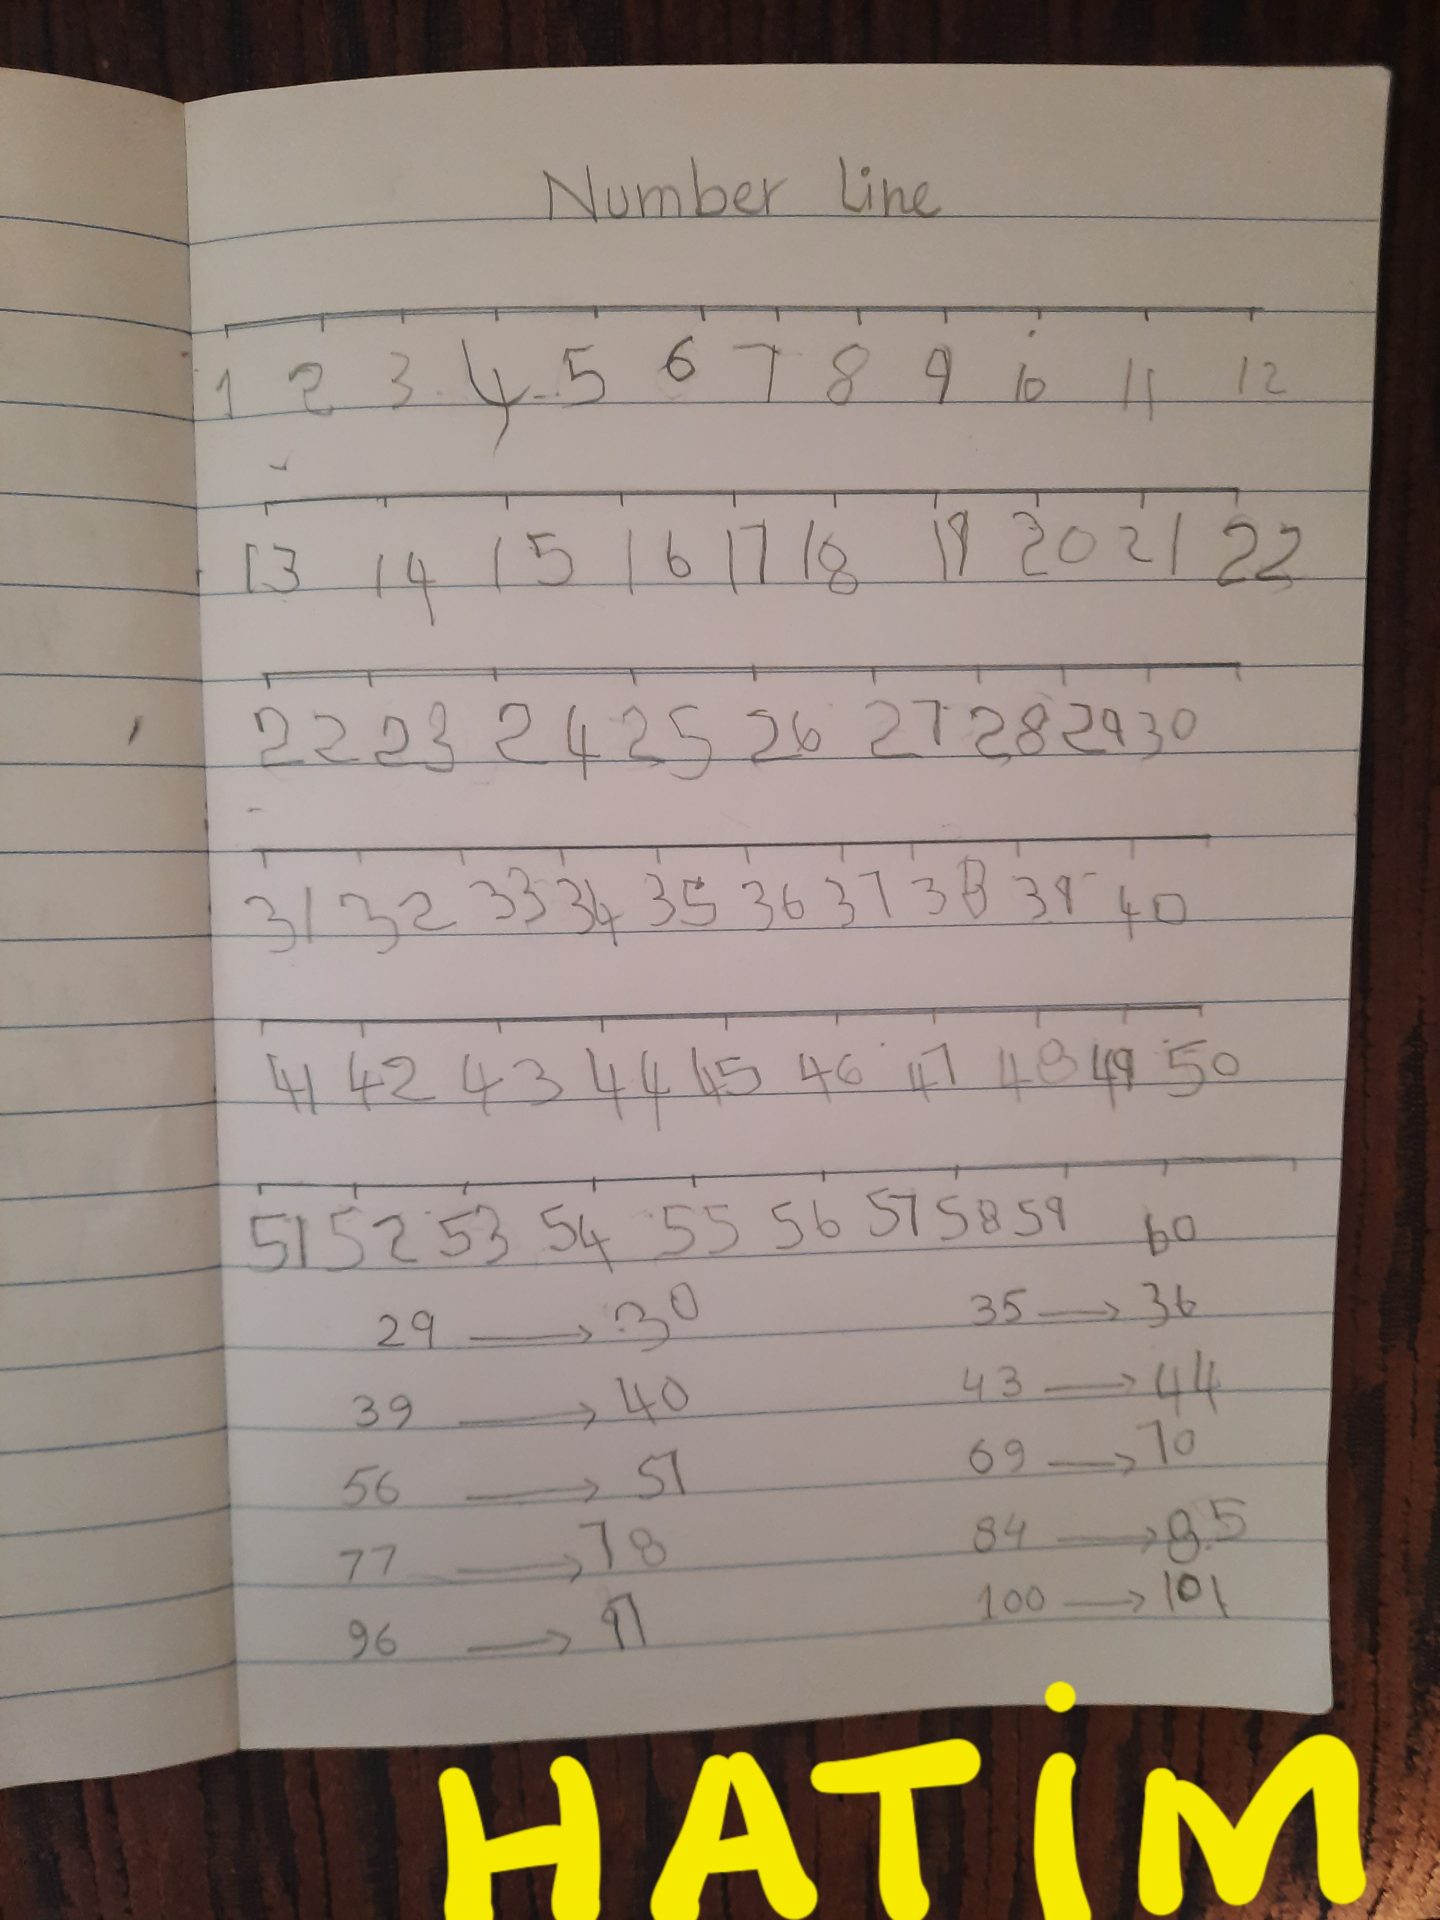 Number Line
1 2 3 4 5 6 7 8 9 10 11 12
13 14 15 16 17 18 19 20 21 22
22 23 24 25 26 27 28 29 30
31 32 33 34 35 36 37 38 39 40
41 42 43 44 45 46 47 48 49 50
51 52 53 54 55 56 57 58 59 60
29 → 30 35 → 36
39 → 40 43 → 44
56 → 57 69 → 70
77 → 78 84 → 85
96 → 97 100 → 101
HATiM